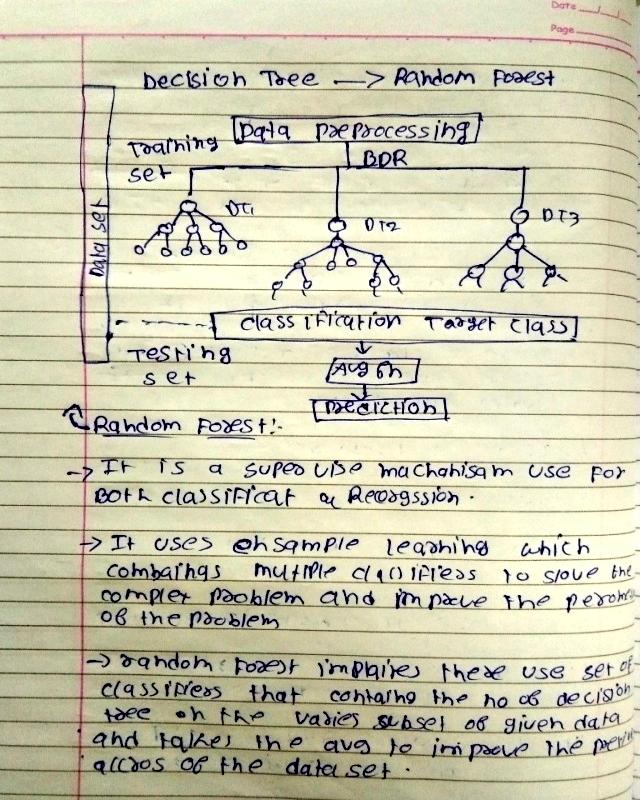 Date
Page
Decision Tree —> Random Forest
Data preprocessing
Training
set
BDR
Data set
DT1
DT2
DT3
Classification Target Class
Testing
set
Prediction
Random Forest:-
-> It is a supeovise machanisam use for
Both classificat & Reorgssion.
-> It uses ensample learning which
combaings multiple classifiers to slove the
complex problem and improve the perome
of the problem
-> random forest implaires there use set of
classifiers that containg the no of decision
tree on the varies subset of given data
and takes the avg to improve the
accros of the data set.